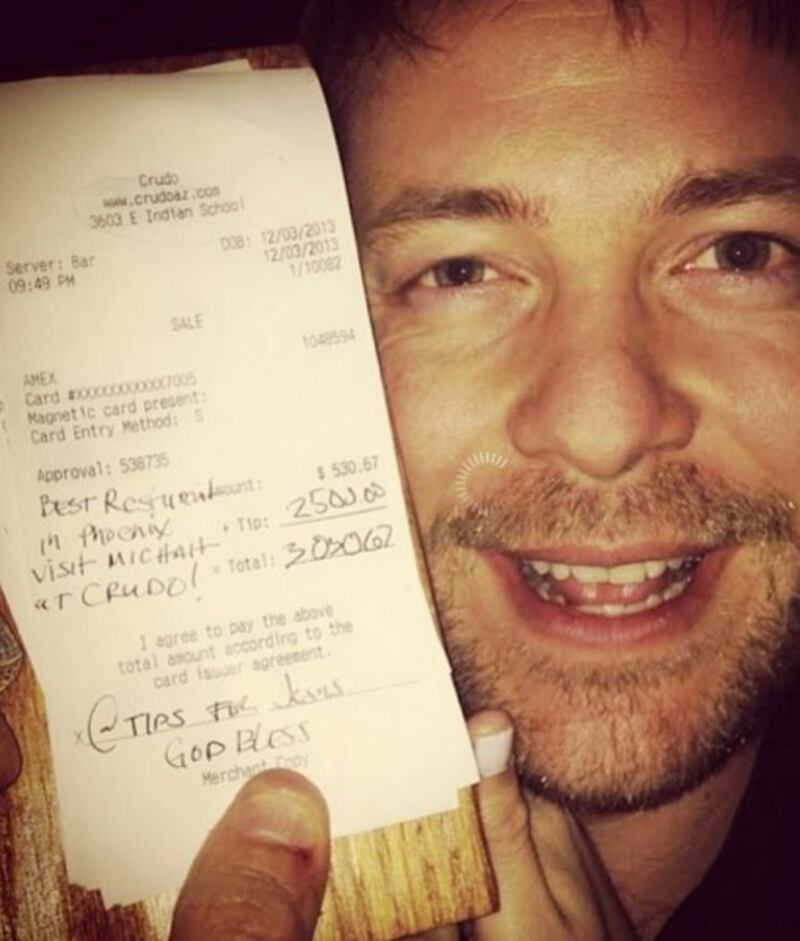 Crudo
www.crudoaz.com
3603 E Indian School
Server: Bar DOB: 12/03/2013
09:49 PM 12/03/2013
1/10082
SALE
1048594
AMEX
Card #XXXXXXXXXXXX7005
Magnetic card present:
Card Entry Method: S
Approval: 538735
Amount: $ 530.67
+ Tip: 2500.00
= Total: 3030.67
BEST Restaurant
in Phoenix
visit MICHAH
at CRUDO!
I agree to pay the above
total amount according to the
card issuer agreement.
x @ TIPS FOR Jesus
GOD BLESS
Merchant Copy